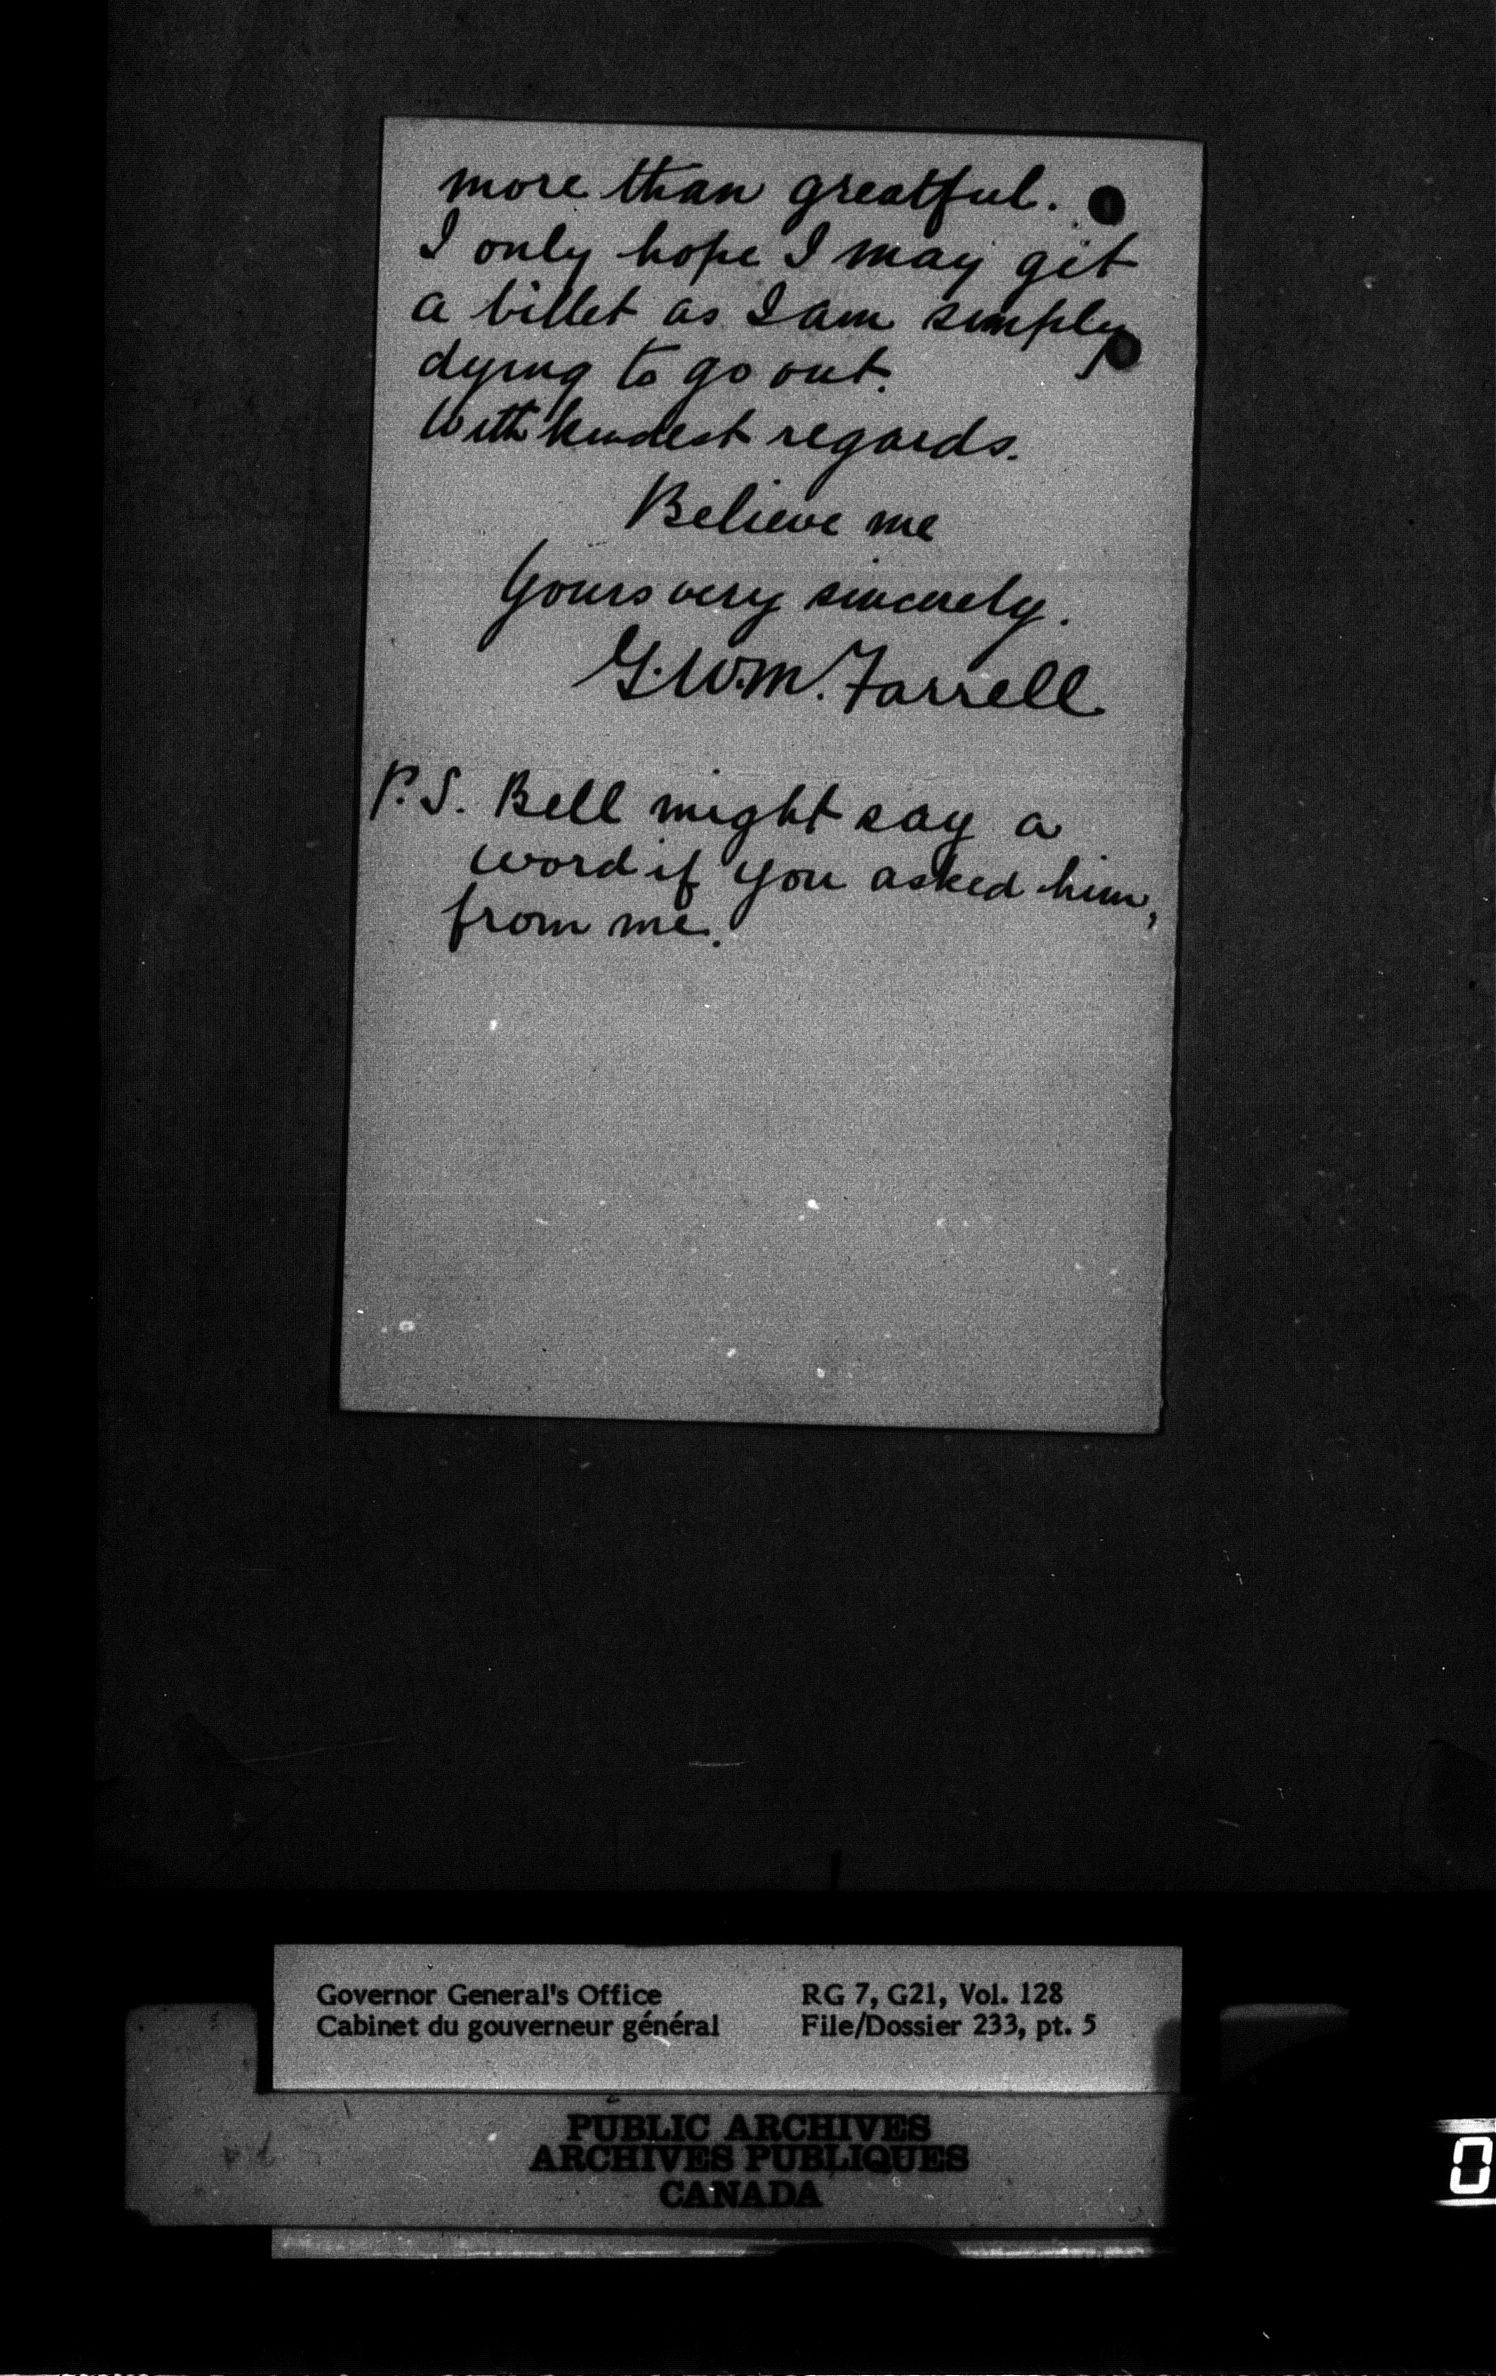 more than greatful.
I only hope I may git
a billet as I am simply
dying to go out.
With kindest regards.
Believe me
Yours very sincerely.
G. W. M. Farrell
P.S. Bell might say a
word if you asked him,
from me.
Governor General's Office
Cabinet du gouverneur général
RG 7, G21, Vol. 128
File/Dossier 233, pt. 5
PUBLIC ARCHIVES
ARCHIVES PUBLIQUES
CANADA
0